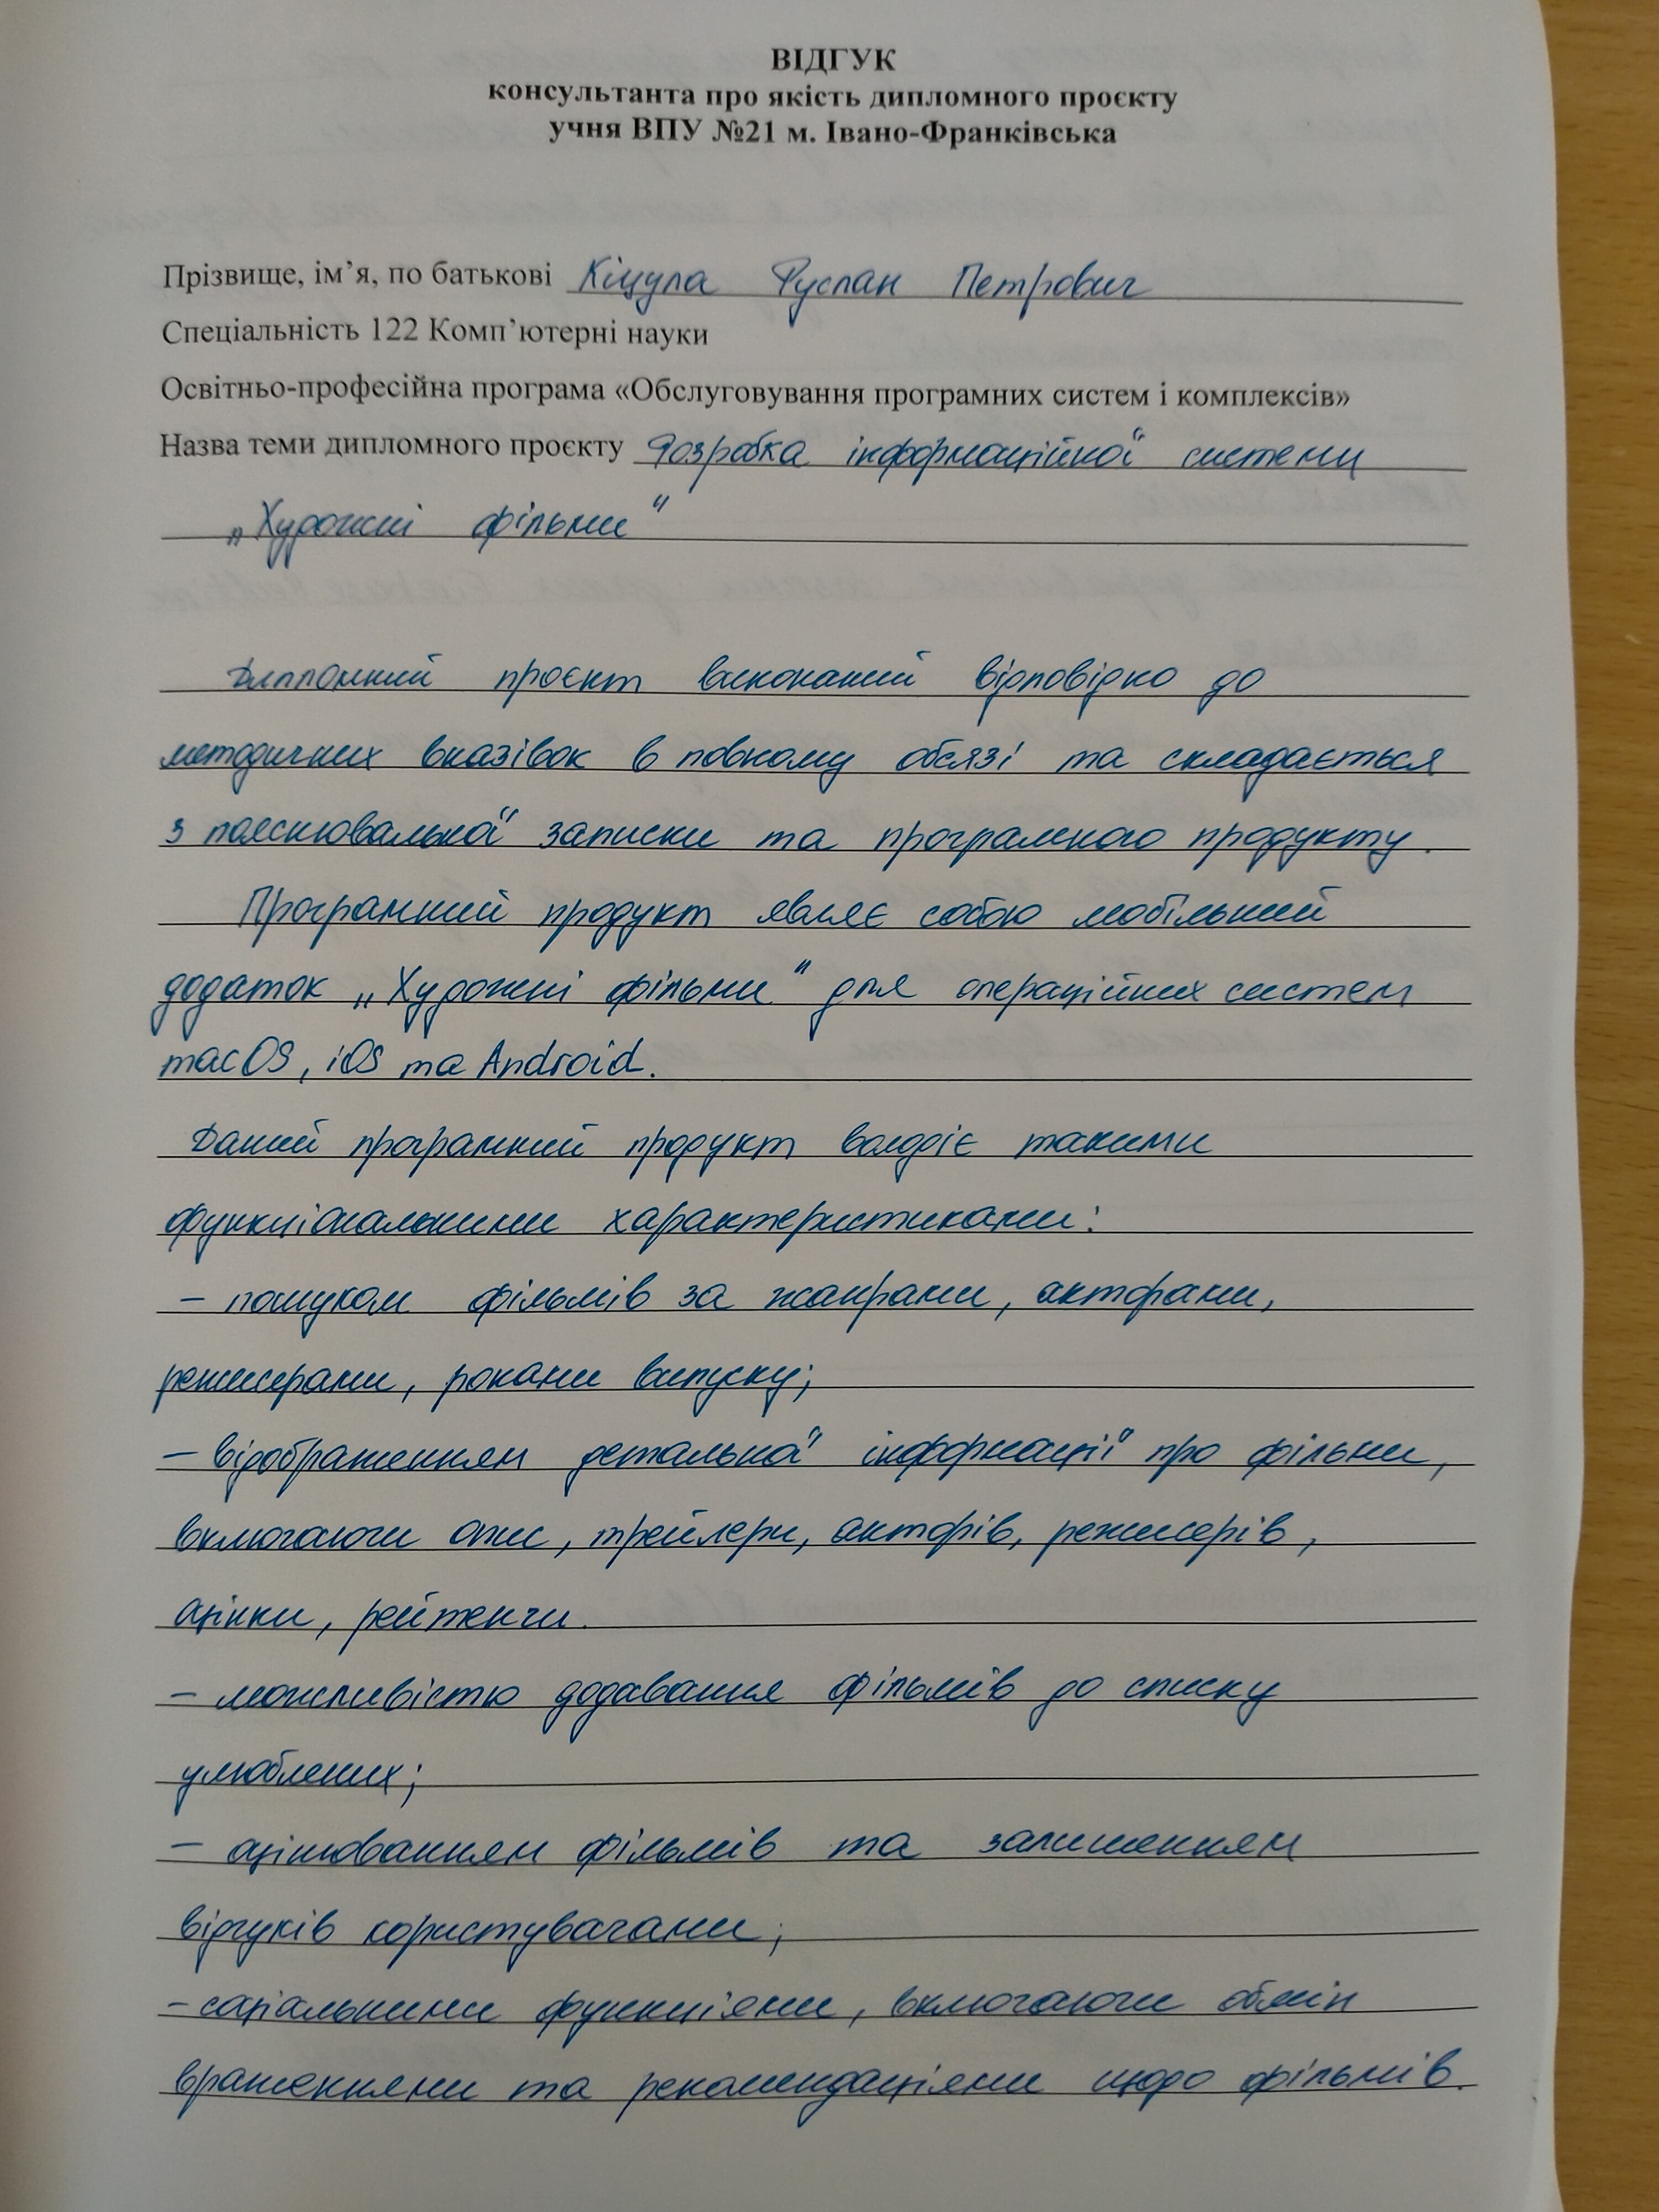 ВІДГУК
консультанта про якість дипломного проєкту
учня ВПУ №21 м. Івано-Франківська
Прізвище, ім’я, по батькові Кіцула Руслан Петрович
Спеціальність 122 Комп’ютерні науки
Освітньо-професійна програма «Обслуговування програмних систем і комплексів»
Назва теми дипломного проєкту Розробка інформаційної системи
„Художні фільми“
Дипломний проєкт виконаний відповідно до
методичних вказівок в повному обсязі та складається
з пояснювальної записки та програмного продукту.
Програмний продукт являє собою мобільний
додаток „Художні фільми“ для операційних систем
macOS, iOS та Android.
Даний програмний продукт володіє такими
функціональними характеристиками:
– пошуком фільмів за жанрами, акторами,
режисерами, роками випуску;
– відображенням детальної інформації про фільми,
включаючи опис, трейлери, акторів, режисерів,
оцінки, рейтенги.
– можливістю додавання фільмів до списку
улюблених;
– оцінюванням фільмів та залишенням
відгуків користувачами;
– соціальними функціями, включаючи обмін
враженнями та рекомендаціями щодо фільмів.